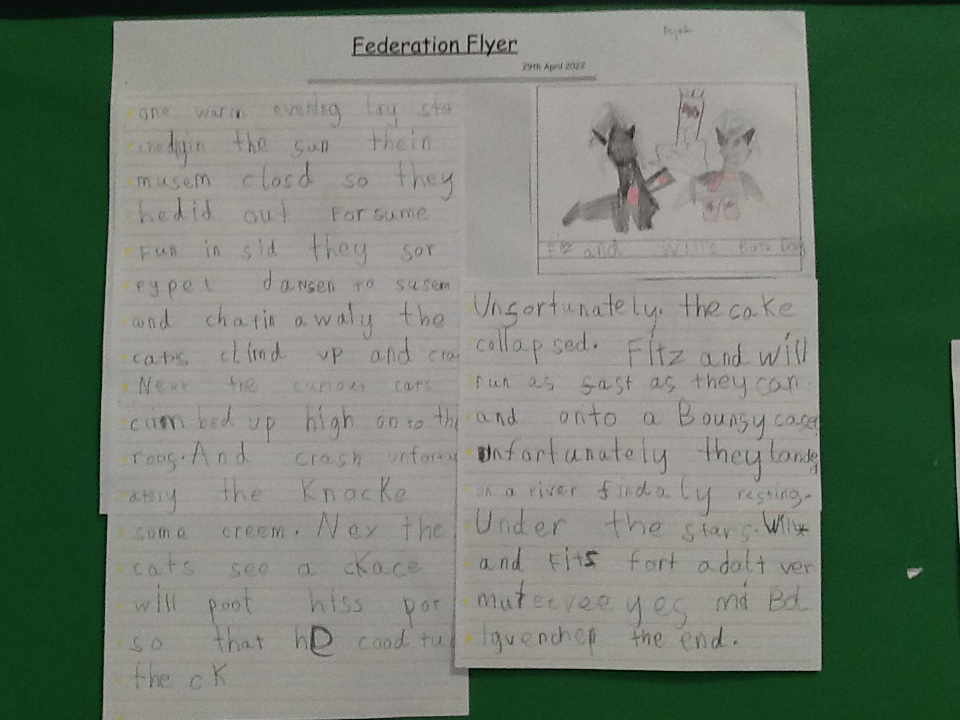 Federation Flyer
29th April 2022
one warm evening lay sta
the sun thein
musem closd so they
hedid out For sume
Fun in sid they sor
pypet dansen to susem
and chatin awaly the
cats climd up and cra
Next the curioes cats
cimbed up high onto the
roog. And crash unfortun
ately the Knocke
some creem. Nex the
cats see a ckace
will poot hiss por
so that he cood tu
the cK
Fiz and Wills Birth Day
Unsortunately. the cake
collapsed. Fitz and Will
run as sast as they can
and onto a Boungy casel
unfortunately they lande
on a river findaly resting.
Under the stars. Will
and Fits fort adalt ver
yes md Bd
the end.